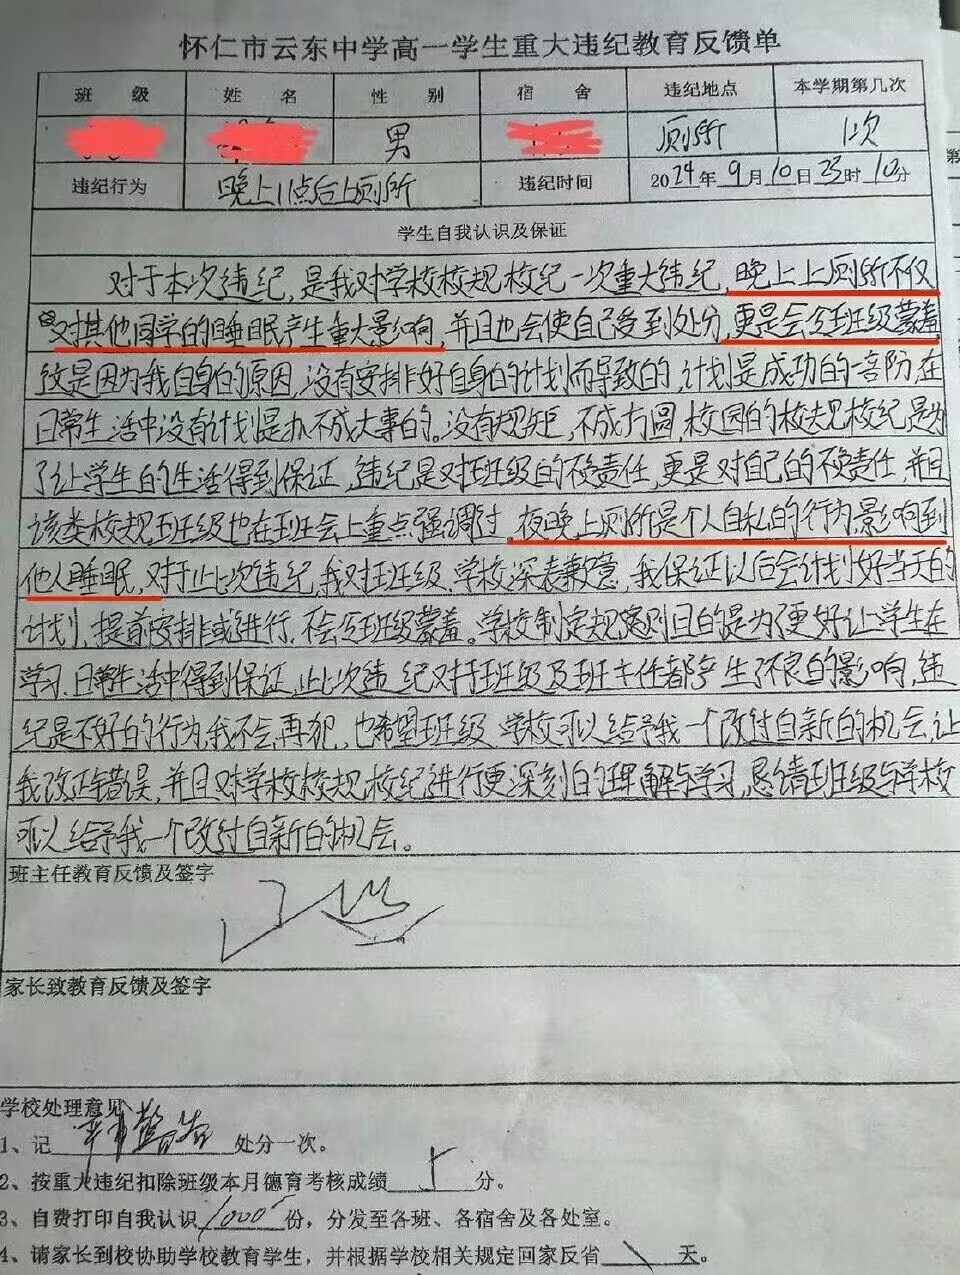 怀仁市云东中学高一学生重大违纪教育反馈单
班 级 姓 名 性 别 宿 舍 违纪地点 本学期第几次
男 厕所 1次
违纪行为 晚上11点后上厕所 违纪时间 2024年9月10日23时10分
学生自我认识及保证
对于本次违纪,是我对学校校规校纪一次重大违纪,晚上上厕所不仅
对其他同学的睡眠产生重大影响,并且也会使自己受到处分,更是会令班级蒙羞
这是因为我自身的原因,没有安排好自身的计划而导致的,计划是成功的一部份,在
日常生活中没有计划是办不成大事的。没有规矩,不成方圆,校园的校规校纪是为
了让学生的生活得到保证,违纪是对班级的不负责任,更是对自己的不负责任,并且
该类校规班级也在班会上重点强调过,夜晚上厕所是个人自私的行为,影响到
他人睡眠,对于此次违纪,我对班级、学校深表歉意,我保证以后会计划好当天的
计划,提前安排或进行,不会令班级蒙羞。学校制定规则目的是为了更好让学生在
学习、日常生活中得到保证,此次违纪对班级及班主任都产生了不良的影响,违
纪是不好的行为,我不会再犯,也希望班级、学校可以给予我一个改过自新的机会,让
我改正错误,并且对学校校规校纪进行更深刻的理解与学习,恳请班级与学校
可以给予我一个改过自新的机会。
班主任教育反馈及签字
家长致教育反馈及签字
学校处理意见
1、记 严重警告 处分一次。
2、按重大违纪扣除班级本月德育考核成绩 5 分。
3、自费打印自我认识 1000 份,分发至各班、各宿舍及各处室。
4、请家长到校协助学校教育学生,并根据学校相关规定回家反省 \ 天。